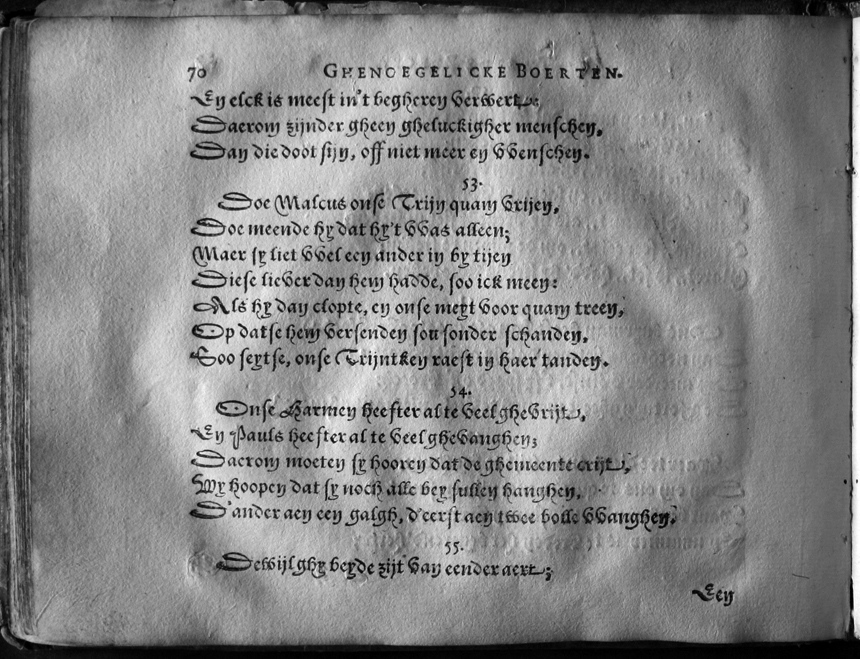 70 GHENOEGELICKE BOERTEN.
En elck is meest in't begheren verwert,
Daerom zijnder gheen gheluckigher menschen,
Dan die doot sijn, off niet meer en VVenschen.
53.
Doe Malcus onse Trijn quam vrijen,
Doe meende hy dat hy't VVas alleen;
Maer sy liet VVel een ander in by tijen
Diese liever dan hem hadde, soo ick meen:
Als hy dan clopte, en onse meyt voor quam treen,
Op datse hem versenden sou sonder schanden,
Soo seytse, onse Trijntken raest in haer tanden.
54.
Onse Harmen heefter al te veel ghevrijt,
En Pauls heefter al te veel ghevanghen;
Daerom moeten sy hooren dat de ghemeente crijt,
Wy hoopen dat sy noch alle bey sullen hanghen,
D'ander aen een galgh, d'eerst aen twee bolle VVanghen.
55.
Dewijl ghy beyde zijt van eender aert;
Een